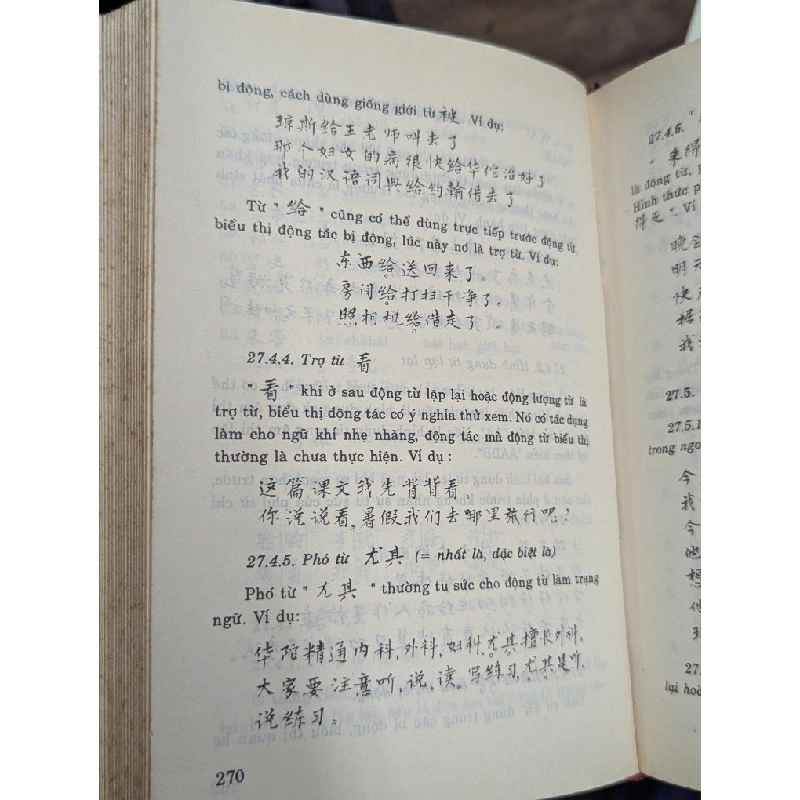 bị động, cách dùng giống giới từ 被. Ví dụ:
琼斯给王老师叫去了
那个妇女的病很快给华佗治好了
我的汉语词典给约翰借去了
Từ "给" cũng có thể dùng trực tiếp trước động từ,
biểu thị động tác bị động, lúc này nó là trợ từ. Ví dụ:
东西给送回来了。
房间给打扫干净了。
照相机给借走了。
27.4.4. Trợ từ 看
"看" khi ở sau động từ lặp lại hoặc động lượng từ là
trợ từ, biểu thị động tác có ý nghĩa thử xem. Nó có tác dụng
làm cho ngữ khí nhẹ nhàng, động tác mà động từ biểu thị
thường là chưa thực hiện. Ví dụ :
这篇课文我先背背看
你说说看,暑假我们去哪里旅行呢?
27.4.5. Phó từ 尤其 (= nhất là, đặc biệt là)
Phó từ "尤其" thường tu sức cho động từ làm trạng
ngữ. Ví dụ:
华陀精通内科,外科,妇科,尤其擅长外科,
大家要注意听,说,读。写练习,尤其是听,
说练习。
270
27.4.6. "
"来得
là động từ,
Hình thức p
得无". Ví
晚会
明天
快
据
我
27.5.
27.5.1
trong ngo
今
我
今
他
想
他
27.
lại hoà